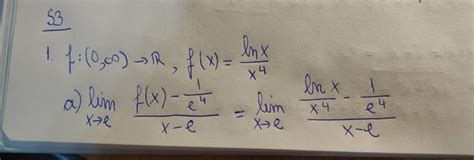 S3
1. f:(0,∞) → ℝ, f(x) = ln x / x⁴
a) lim x→e (f(x) - 1/e⁴) / (x-e) = lim x→e (ln x / x⁴ - 1/e⁴) / (x-e)